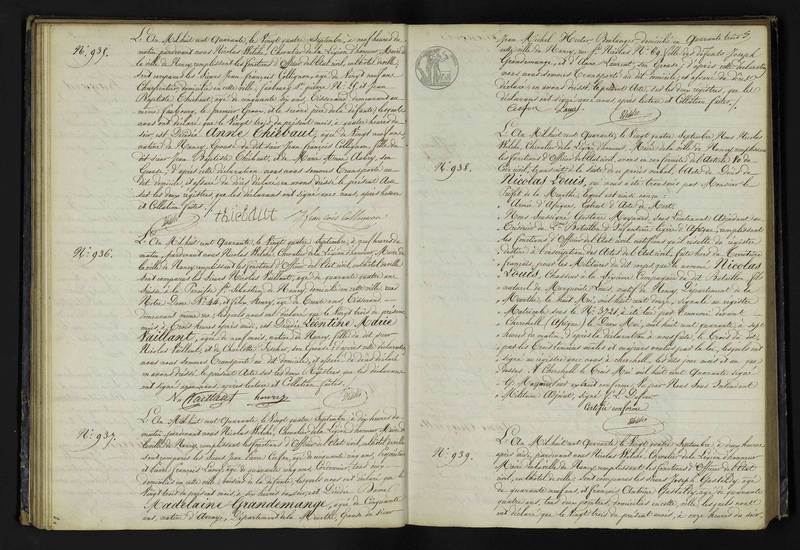 N.o 935.
L'An Mil huit cent Quarante, le Vingt quatre Septembre, à neuf heures du
matin, pardevant nous Nicolas Welche, Chevalier de la Légion d'honneur, Maire de
la ville de Nancy, remplissant les fonctions d'Officier de l'Etat civil, en l'hôtel de ville,
sont comparus les Sieurs Jean François Collignon, âgé de Vingt neuf ans,
Charpentier, domicilié en cette ville, faubourg St. pierre N.o et Jean
Baptiste Thiébaut, âgé de cinquante six ans, Tisserand, demeurant au
même faubourg, le premier Epoux, et le second père de la défunte, lesquels
nous ont déclaré que le Vingt trois du présent mois, à quatre heures du
soir, est Décédée Anne Thiébaut, âgée de Vingt neuf ans,
native de Nancy, Epouse du dit sieur Jean François Collignon, fille du
dit sieur Jean Baptiste Thiébaut, et de Marie Aubry, son
Epouse; d'après cette déclaration nous nous sommes Transporté au
dit domicile, et assuré du décès déclaré, en avons dressé le présent Acte
sur les deux registres, que les déclarants ont signé avec nous, après lecture
et Collation faites.
Thiebaut Jean Collignon
N.o 936.
L'An Mil huit cent Quarante, le Vingt quatre Septembre, à neuf heures du
matin, pardevant nous Nicolas Welche, Chevalier de la Légion d'honneur, Maire de
la ville de Nancy, remplissant les fonctions d'Officier de l'Etat civil, en l'hôtel de ville,
sont comparus les Sieurs Nicolas Vaillant, âgé de quarante quatre ans,
Suisse à la Paroisse St. Sébastien de Nancy, domicilié en cette ville, rue
Notre Dame N.o 44, et Henry, âgé de Trente ans, Tisserand
demeurant même rue, lesquels nous ont déclaré que le Vingt trois du présent
mois, à Trois heures après midi, est Décédée Léontine Marie
Vaillant, âgée de neuf mois, native de Nancy, fille du dit sieur
Nicolas Vaillant, et de Charlotte son Epouse; d'après cette déclaration
nous nous sommes Transporté au dit domicile, et assuré du décès déclaré,
en avons dressé le présent Acte sur les deux Registres que les déclarants
ont signé avec nous, après lecture et Collation faites.
N. Vaillant henry
N.o 937.
L'An Mil huit cent Quarante, le Vingt quatre Septembre, à dix heures du
matin, pardevant nous Nicolas Welche, Chevalier de la Légion d'honneur, Maire de
la ville de Nancy, remplissant les fonctions d'Officier de l'Etat civil, en l'hôtel de ville,
sont comparus les Sieurs Jean Louis âgé de cinquante cinq ans,
et François Laury, âgé de quarante cinq ans, tous deux
domiciliés en cette ville, de la défunte, lesquels nous ont déclaré que le
Vingt trois du présent mois, à six heures du soir, est Décédée Dame
Madelaine Grandemange, âgée de Cinquante
ans, native d' Département de la Meurthe, Epouse du sieur
Jean Michel Boulanger, domicilié en
cette ville de Nancy, rue St. Nicolas N.o 69, fille des défunts Joseph
Grandemange, et d'Anne Laurent, son Epouse; d'après cette déclaration
nous nous sommes Transporté au dit domicile, et assuré du décès
déclaré, en avons dressé le présent Acte, sur les deux registres, que les
déclarants ont signé avec nous, après lecture et Collation faites.
N.o 938.
L'An Mil huit cent Quarante, le Vingt quatre Septembre, Nous Nicolas
Welche, Chevalier de la Légion d'honneur, Maire de la ville de Nancy, remplissant
les fonctions d'Officier de l'Etat civil, avons en conformité de l'Article
Code civil, transcrit de la suite l'Acte de Décès de
Nicolas Louis, qui nous a été transmis par Monsieur le
Préfet de la Meurthe, lequel est ainsi conçu:
Armée d'Afrique. Extrait d'Acte de Mort.
Nous Soussigné Gustave Sous Lieutenant Adjudant au
Trésorier du 2.e Bataillon d'Infanterie Légère d'Afrique, remplissant
les fonctions d'Officier de l'Etat civil, certifions qu'il résulte du registre
destiné à l'inscription des Actes de l'Etat civil, faits hors du Territoire
français, pour le nommé Nicolas
Louis, Chasseur à la Compagnie du dit Bataillon, fils
naturel de Marguerite Louis, natif de Nancy, Département de la
Meurthe, le huit Mai, mil huit cent douze, signalé au registre
Matricule sous le N.o 3728, à été tué par l'ennemi devant
Cherchell (Afrique) le Deux Mai, mil huit cent quarante, à sept
heures du matin, d'après la déclaration à nous faite, le Trois du dit
par les Trois témoins mâles et majeurs voulus par la loi, lesquels ont
signé au registre avec nous à Cherchell, les dits jour mois et an que
dessus. A Cherchell, le Trois Mai, mil huit cent quarante signé
G. pour extrait conforme, signé par Nous Sous Intendant
Militaire Adjoint, signé
Certifié conforme
N.o 939.
L'An Mil huit cent Quarante, le Vingt quatre Septembre, à deux heures
après midi, pardevant nous Nicolas Welche, Chevalier de la Légion d'honneur,
Maire de la ville de Nancy, remplissant les fonctions d'Officier de l'Etat
civil, en l'hôtel de ville, sont comparus les Sieurs Joseph âgé
de quarante neuf ans, et François âgé de quarante
quatre ans, tous deux domiciliés en cette ville, lesquels nous
ont déclaré que le Vingt trois du présent mois, à onze heures du soir